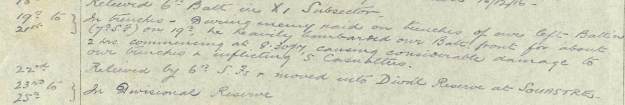 18th Relieved 6th Battn in X1 Subsector. 16/12/16 -
19th to } In trenches - During enemy raid on trenches of ours left Battn
21st } (7th S.F.) on 19th, he heavily bombarded our Batt front for about
2 hrs commencing at 8.30 PM, causing considerable damage to
our trenches & inflicting 5 Casualties.
22nd Relieved by 6th S.Fs & moved into Divnl Reserve at SOUASTRE.
23rd to } In Divisional Reserve
25th }